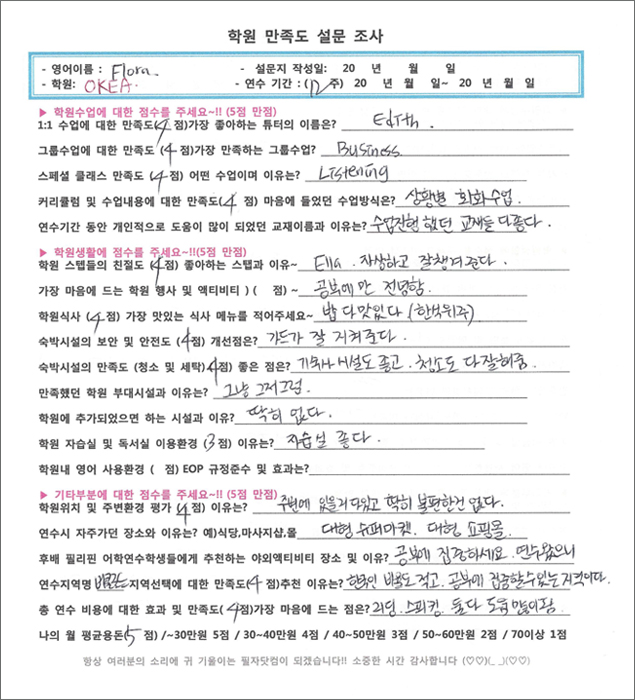 학원 만족도 설문 조사
- 영어이름 : Flora. - 설문지 작성일: 20 년 월 일
- 학원: OKEA. - 연수 기간 : (12주) 20 년 월 일~ 20 년 월 일
▶ 학원수업에 대한 점수를 주세요~!! (5점 만점)
1:1 수업에 대한 만족도(4 점)가장 좋아하는 튜터의 이름은? Edith.
그룹수업에 대한 만족도 (4 점)가장 만족하는 그룹수업? Business
스페셜 클래스 만족도 (4 점) 어떤 수업이며 이유는? Listening
커리큘럼 및 수업내용에 대한 만족도(4 점) 마음에 들었던 수업방식은? 상황별 회화수업.
연수기간 동안 개인적으로 도움이 많이 되었던 교재이름과 이유는? 수업진행했던 교재들 다좋다.
▶ 학원생활에 점수를 주세요~!!(5점 만점)
학원 스텝들의 친절도 (4점) 좋아하는 스탭과 이유~ Ella. 자상하고 잘챙겨준다.
가장 마음에 드는 학원 행사 및 액티비티 ) ( 점) ~ 공부에만 전념함.
학원식사 (4점) 가장 맛있는 식사 메뉴를 적어주세요~ 밥 다맛있다 (한식위주)
숙박시설의 보안 및 안전도 (4점) 개선점은? 가드가 잘 지켜준다.
숙박시설의 만족도 (청소 및 세탁)(4점) 좋은 점은? 기숙사 시설도 좋고. 청소도 다잘해줌.
만족했던 학원 부대시설과 이유는? 그냥 그저그럼.
학원에 추가되었으면 하는 시설과 이유? 딱히 없다.
학원 자습실 및 독서실 이용환경 (3 점) 이유는? 자습실 좋다.
학원내 영어 사용환경 ( 점) EOP 규정준수 및 효과는?
▶ 기타부분에 대한 점수를 주세요~!! (5점 만점)
학원위치 및 주변환경 평가 (4 점) 이유는? 주변에 있을거 다있고 딱히 불편한건 없다.
연수시 자주가던 장소와 이유는? 예)식당,마사지샵,몰 대형 슈퍼마켓. 대형 쇼핑몰
후배 필리핀 어학연수학생들에게 추천하는 야외액티비티 장소 및 이유? 공부에 집중하세요. 연수왔으니
연수지역명 바콜로드 지역선택에 대한 만족도(4 점)추천 이유는? 한국인 비율도 적고. 공부에 집중할수있는 지역이다.
총 연수 비용에 대한 효과 및 만족도( 4점)가장 마음에 드는 점은? 리딩. 스피킹. 둘다 도움 많이됨
나의 월 평균용돈(5 점) /~30만원 5점 / 30~40만원 4점 / 40~50만원 3점 / 50~60만원 2점 / 70이상 1점
항상 여러분의 소리에 귀 기울이는 필자닷컴이 되겠습니다!! 소중한 시간 감사합니다 (♡♡)(_ _)(♡♡)